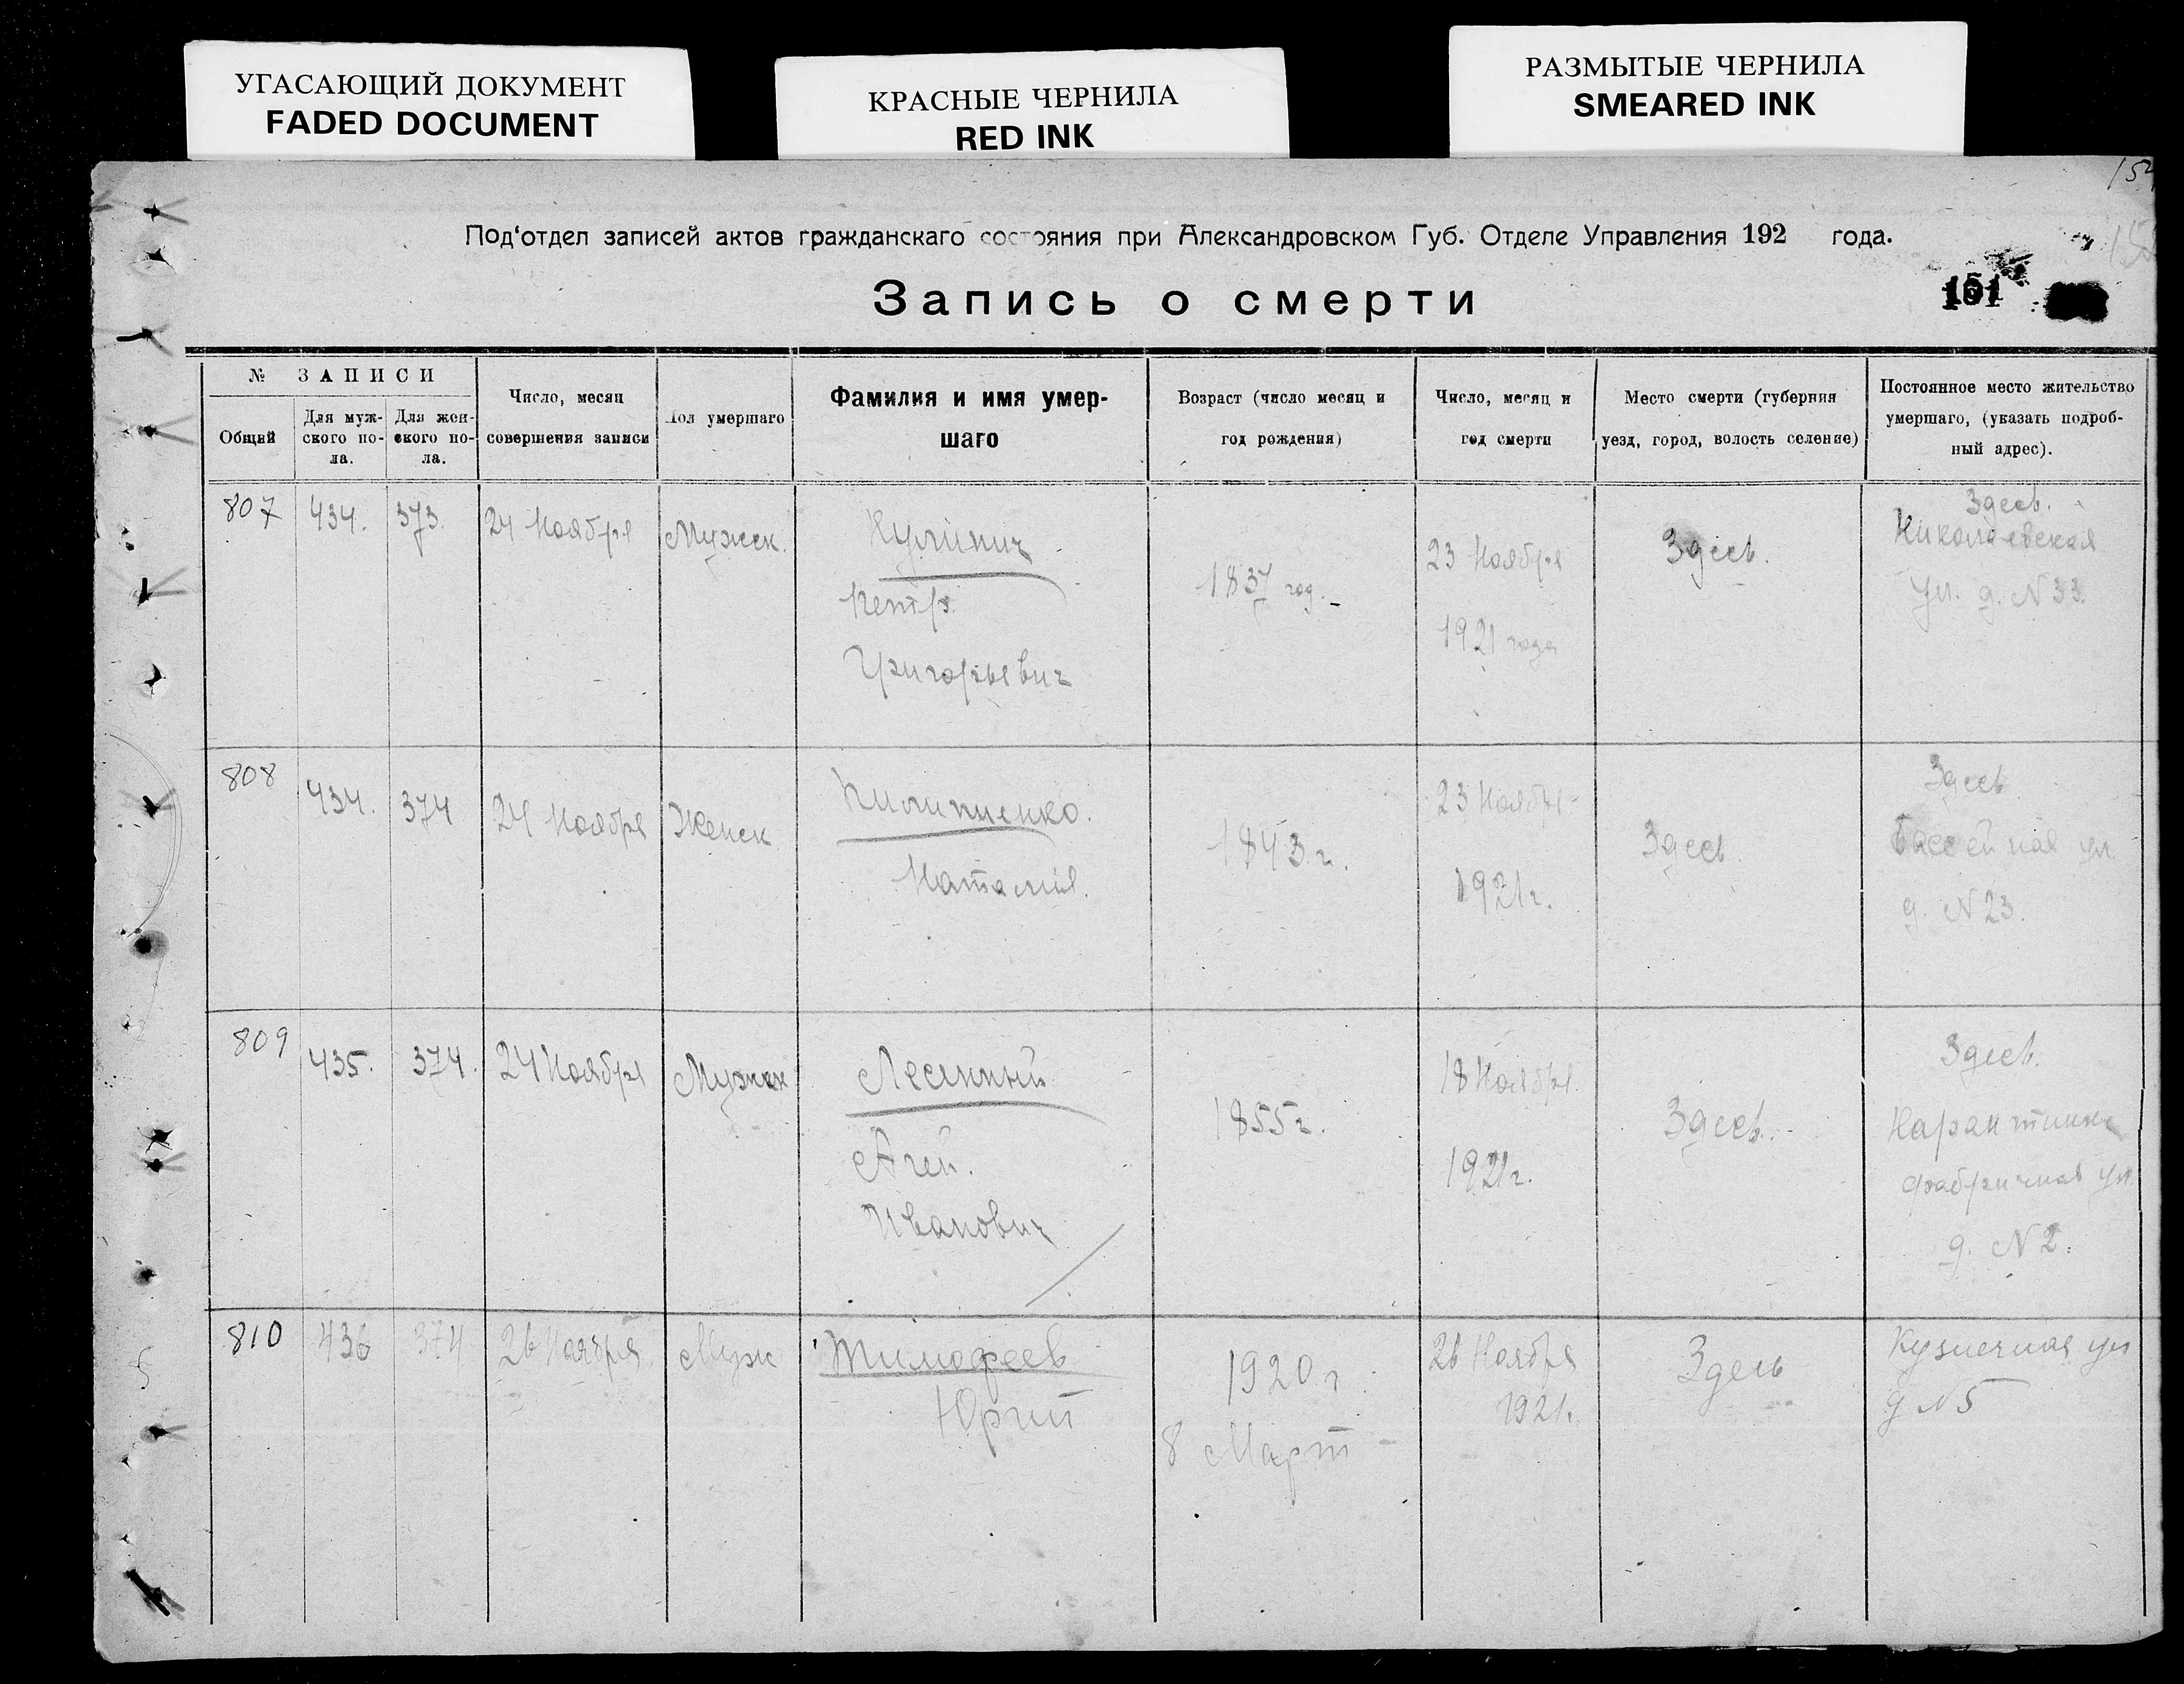 УГАСАЮЩИЙ ДОКУМЕНТ
FADED DOCUMENT
КРАСНЫЕ ЧЕРНИЛА
RED INK
РАЗМЫТЫЕ ЧЕРНИЛА
SMEARED INK
Под'отдел записей актов гражданскаго состояния при Александровском Губ. Отделе Управления 192 года.
Запись о смерти
151
№ ЗАПИСИ
Общий
Для муж-
ского по-
ла.
Для жен-
ского по-
ла.
Число, месяц
совершения записи
Пол умершаго
Фамилия и имя умер-
шаго
Возраст (число месяц и
год рождения)
Число, месяц и
год смерти
Место смерти (губерния
уезд, город, волость селение)
Постоянное место жительство
умершаго, (указать подроб-
ный адрес).
807
434.
373.
24 Ноября
Мужск.
Петр
Григорьевич
1837 год.
23 Ноября
1921 года
Здесь.
Здесь.
Николаевская
ул. д. N 33.
808
434.
374
24 Ноября
Женск
Пилипенко.
Наталия.
1843 г.
23 Ноября
1921 г.
Здесь.
Здесь
Бассейная ул
д. N 23.
809
435.
374.
24 Ноября
Мужск
Агей.
Иванович
1855 г.
18 Ноября.
1921 г.
Здесь.
Здесь.
фабричная ул
д. N 2.
810
436
374
26 Ноября
Муж
Тимофеев
Юрий
1920 г.
8 Март
26 Ноября
1921.
Здесь
Кузнечная ул
д N 5